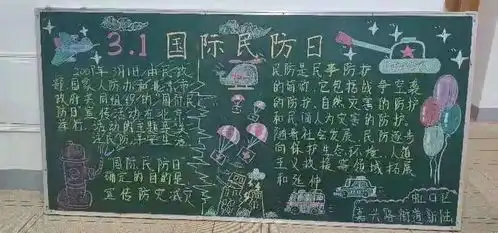 3.1国际民防日
2001年3月1日,由民政
部、国家人防办和北京市
政府共同组织的"国际民
防日宣传活动在北京
举行。活动的主题是关
注民防,平安生活
国际民防日
确定的目的是
宣传防灾减灾
民防是民事防护
的简称,它包括战争空袭
的防护、自然灾害的防护
和民间人为灾害的防护。
随着社会发展,民防逐步
向保护生态环境、人道
主义救援等领域拓展
和延伸
虹口区
嘉兴路街道新陆